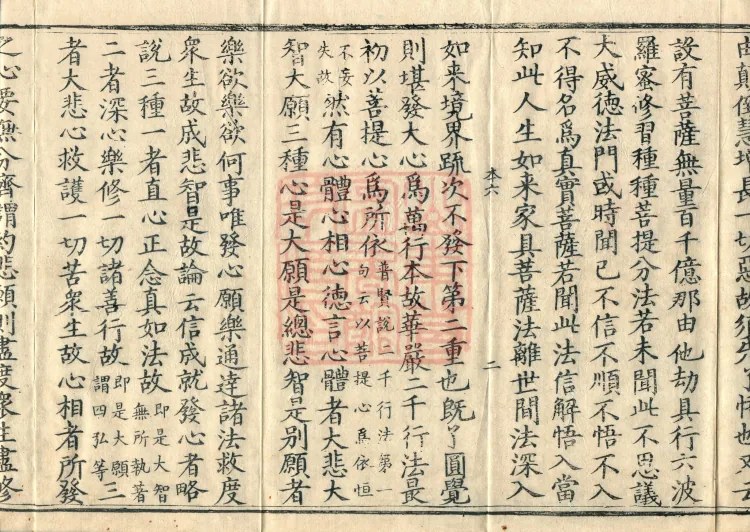 設有菩薩無量百千億那由他劫具行六波
羅蜜修習種種菩提分法若未聞此不思議
大威德法門或時聞已不信不順不悟不入
不得名爲真實菩薩若聞此法信解悟入當
知此人生如来家具菩薩法離世間法深入
本六
二
如来境界疏次不發下第二重也旣了圓覺
則堪發大心爲萬行本故華嚴二千行法最
初以菩提心爲所依普賢說二千行法第一句云以菩提心爲依恒
不妄失故然有心體心相心德言心體者大悲大
智大願三種心是大願是總悲智是別願者
樂欲樂欲何事唯發心願樂通達諸法救度
衆生故成悲智是故論云信成就發心者略
說三種一者直心正念真如法故即是大智無所執著
二者深心樂修一切諸善行故即是大願謂四弘等三
者大悲心救護一切苦衆生故心相者所發
之心要無分齊謂約悲願則盡度衆生盡修